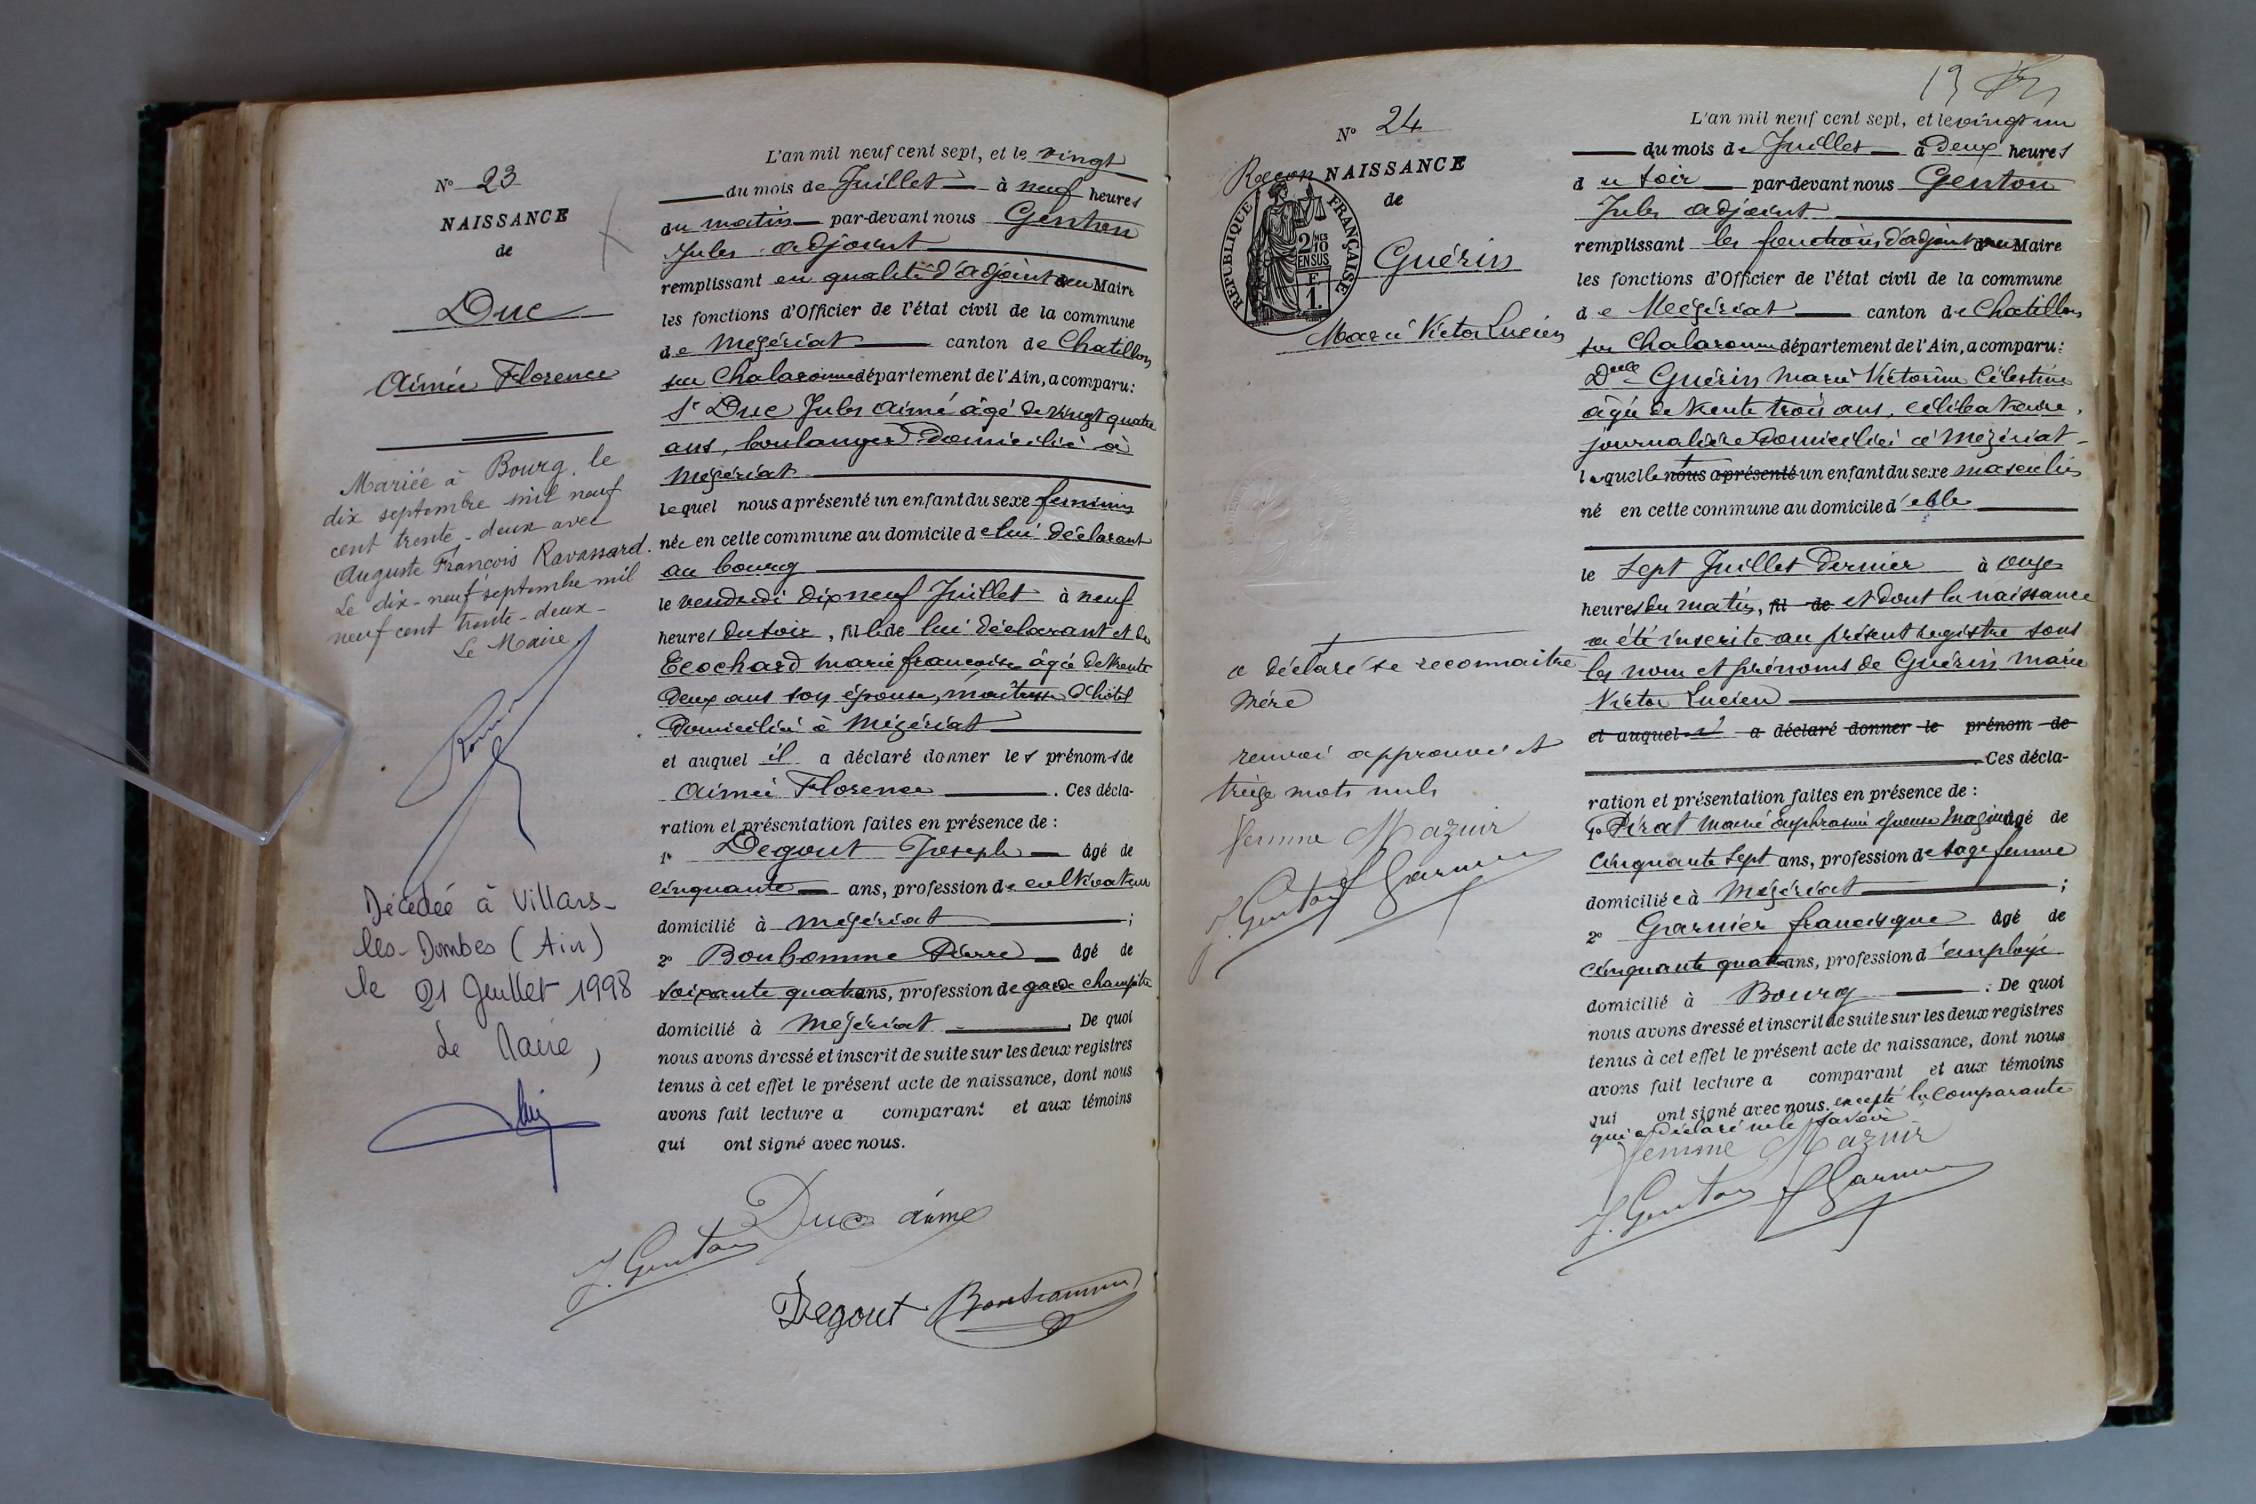 N° 23
NAISSANCE
de
Duc
Aimée Florence
Mariée à Bourg, le
dix septembre mil neuf
cent trente-deux avec
Auguste François Ravassard.
Le dix-neuf septembre mil
neuf cent trente-deux-
Le Maire
Décédée à Villars-
les-Dombes (Ain)
le 21 Juillet 1998
Le Maire,
L'an mil neuf cent sept, et le vingt
du mois de Juillet à neuf heures
du matin par-devant nous Genton
Jules adjoint
remplissant en qualité d'adjoint au Maire
les fonctions d'Officier de l'état civil de la commune
de Mézériat canton de Chatillon
sur Chalaronne département de l'Ain, a comparu:
Sr Duc Jules Aimé âgé de vingt quatre
ans, boulanger domicilié à
Mézériat
lequel nous a présenté un enfant du sexe féminin
née en cette commune au domicile de lui déclarant
au bourg
le vendredi dix neuf Juillet à neuf
heures du soir, fille de lui déclarant et de
Ecochard Marie françoise âgée de trente
deux ans son épouse, maîtresse d'hôtel
domiciliée à Mézériat
et auquel il a déclaré donner les prénoms de
Aimée Florence. Ces décla-
ration et présentation faites en présence de :
1° Degout Joseph âgé de
cinquante ans, profession de cultivateur
domicilié à Mézériat ;
2° Bonhomme Pierre âgé de
soixante quatre ans, profession de garde champêtre
domicilié à Mézériat. De quoi
nous avons dressé et inscrit de suite sur les deux registres
tenus à cet effet le présent acte de naissance, dont nous
avons fait lecture a comparant et aux témoins
qui ont signé avec nous.
Duc aimé
J. Genton
Degout Bonhomme
19
N° 24
Recon NAISSANCE
de
REPUBLIQUE FRANÇAISE
2/10 MES
EN SUS
F
1.
Guérin
Marie Victor Lucien
a déclaré se reconnaitre
mère
renvoi approuvé et
treize mots nuls
femme Mazuir
J. Genton F Garnier
L'an mil neuf cent sept, et le vingt un
du mois de Juillet à deux heures
du soir par-devant nous Genton
Jules adjoint
remplissant les fonctions d'adjoint au Maire
les fonctions d'Officier de l'état civil de la commune
de Mézériat canton de Chatillon
sur Chalaronne département de l'Ain, a comparu:
Delle Guérin Marie Victorine Célestine
âgée de trente trois ans, célibataire,
journalière domiciliée à Mézériat
laquelle nous a présenté un enfant du sexe masculin
né en cette commune au domicile d'elle
le sept Juillet dernier à onze
heures du matin, fil de et dont la naissance
a été inscrite au présent registre sous
les nom et prénoms de Guérin Marie
Victor Lucien
et auquel il a déclaré donner le prénom de
Ces décla-
ration et présentation faites en présence de :
1° Pérat Marie Euphrasine épouse Mazuir âgé de
cinquante sept ans, profession de sage femme
domiciliée à Mézériat ;
2° Garnier francisque âgé de
cinquante quatre ans, profession d'employé
domicilié à Bourg. De quoi
nous avons dressé et inscrit de suite sur les deux registres
tenus à cet effet le présent acte de naissance, dont nous
avons fait lecture a comparant et aux témoins
qui ont signé avec nous. excepté la comparante
qui a déclaré ne le savoir
femme Mazuir
J. Genton F Garnier